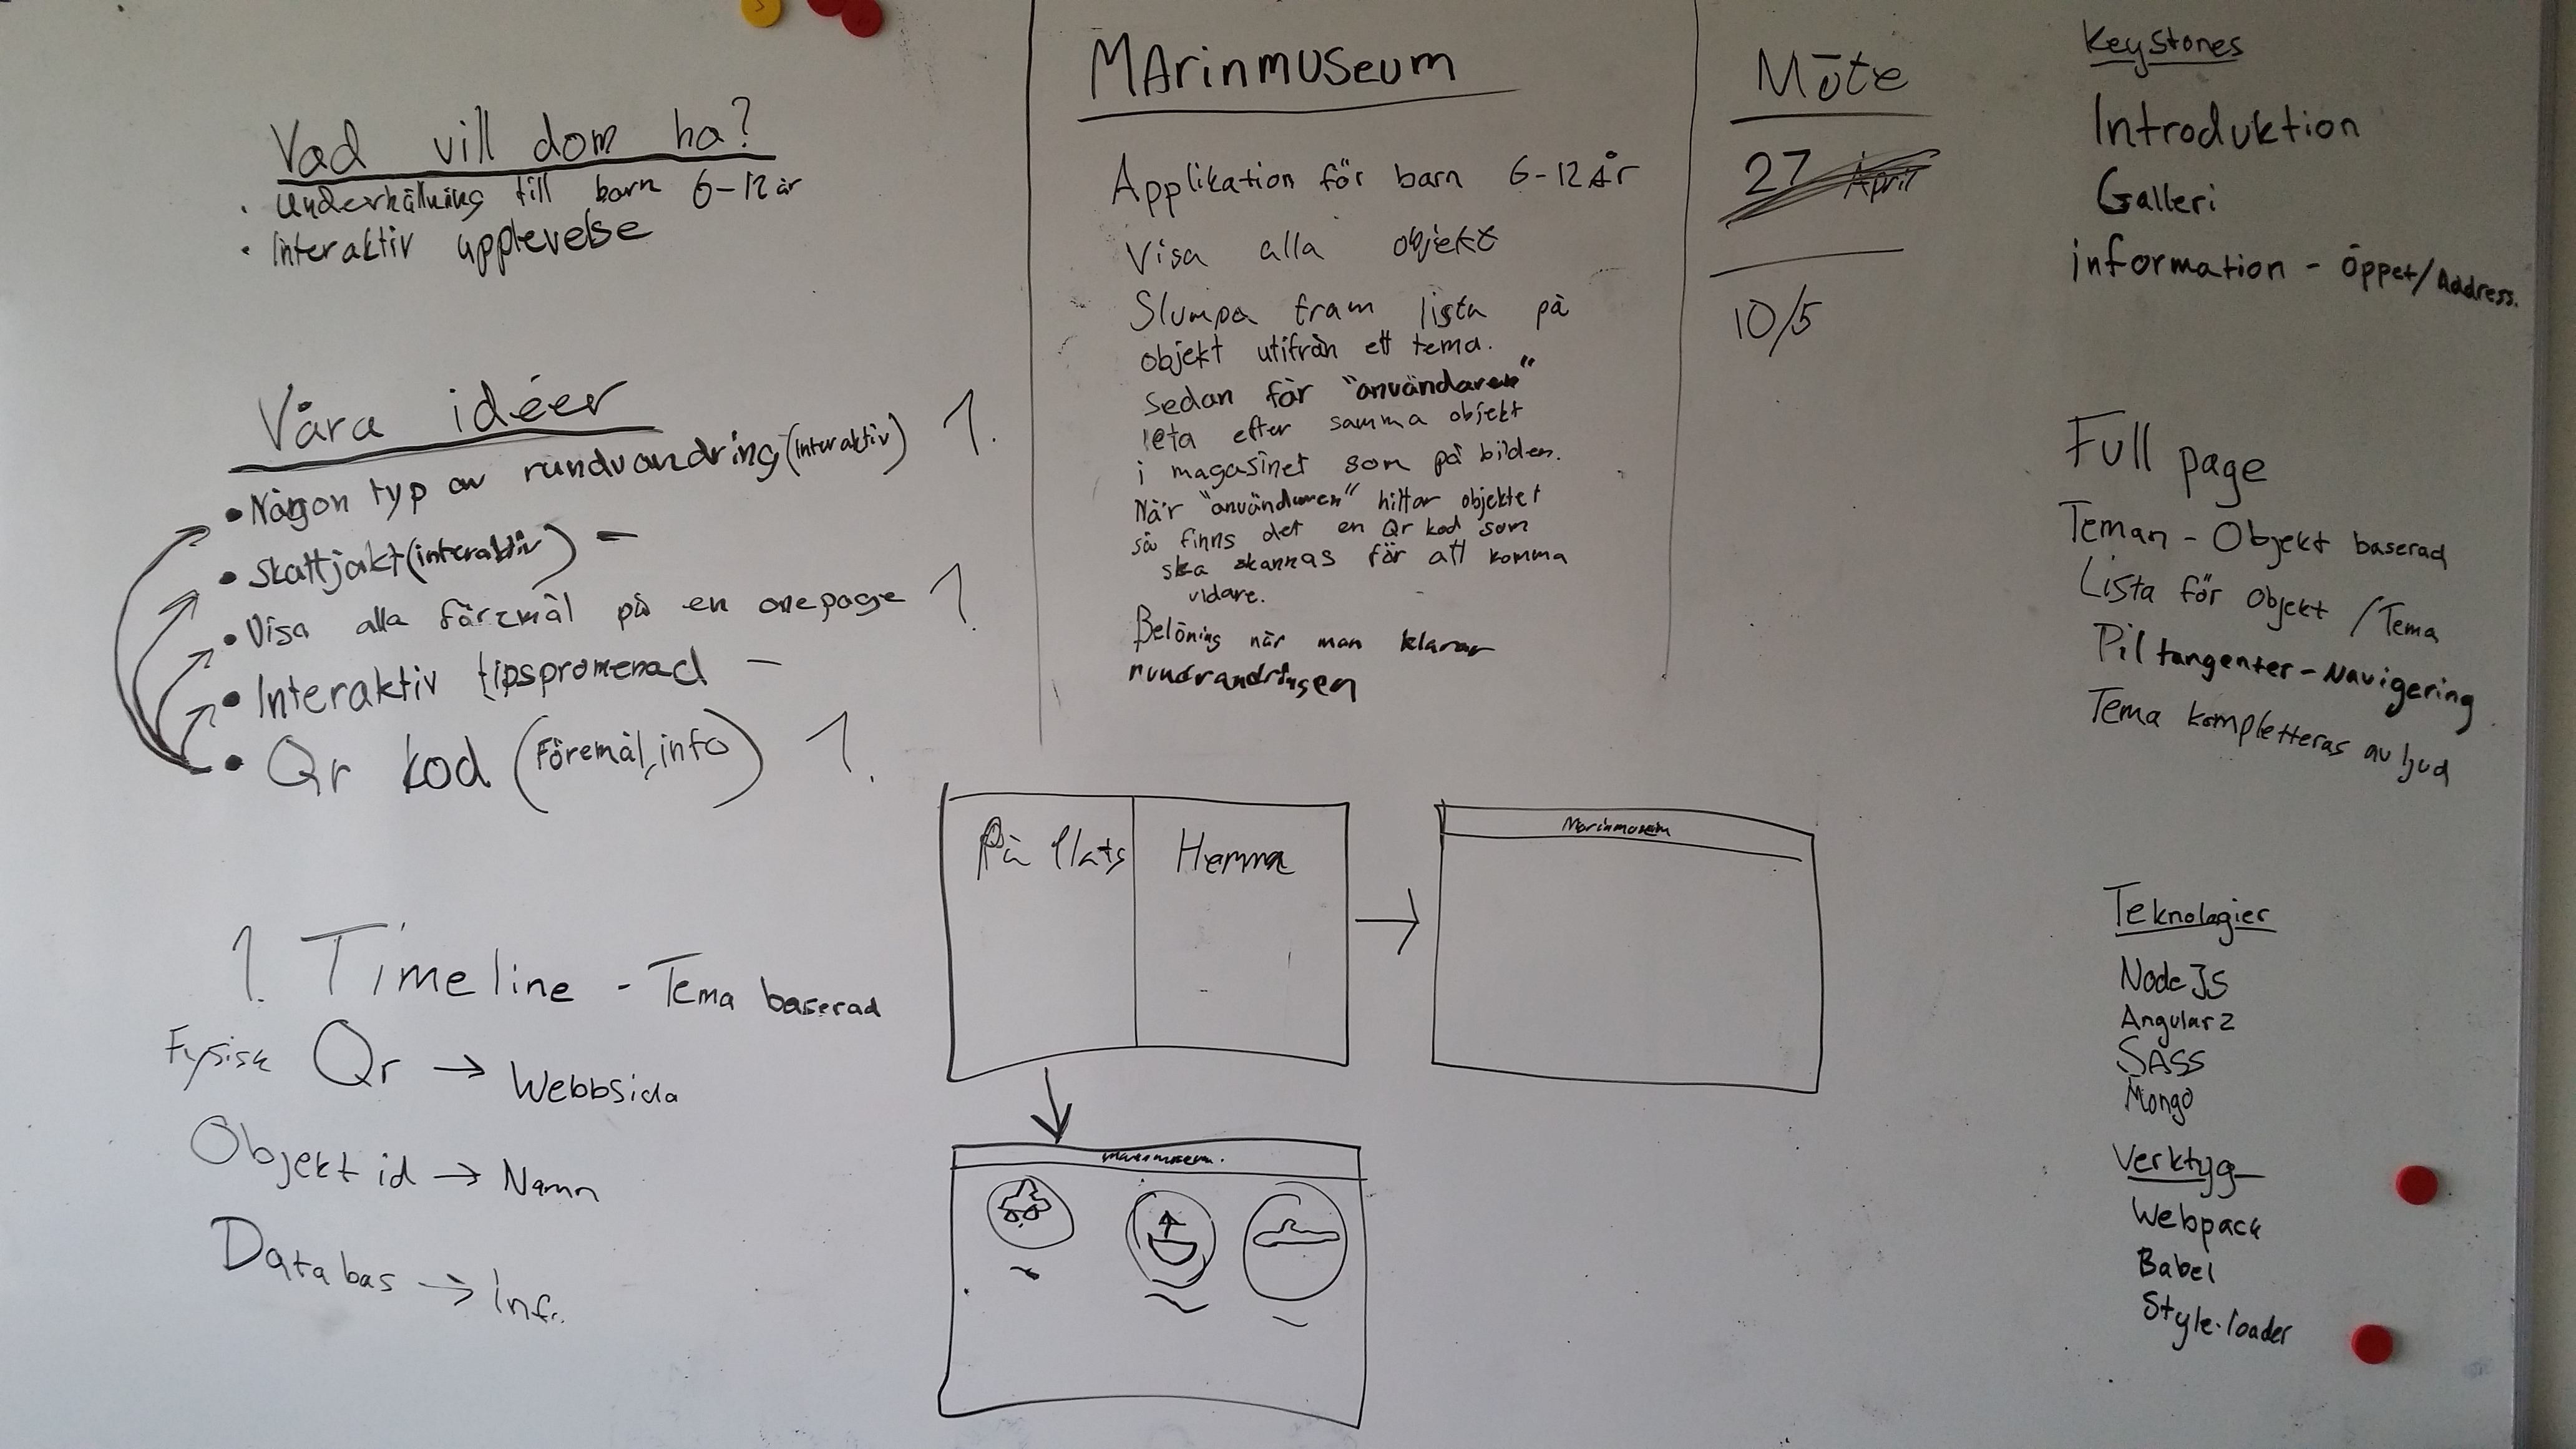 Vad vill dom ha?
· Underhållning till barn 6-12 år
· Interaktiv upplevelse
Våra idéer
• Någon typ av rundvandring (interaktiv) 1.
• Skattjakt (interaktiv) -
• Visa alla föremål på en onepage 1.
• Interaktiv tipspromenad -
• Qr kod (Föremål, info) 1.
1. Timeline - Tema baserad
Fysisk Qr → Webbsida
Objekt id → Namn
Databas → inf.
MArinmuseum
Applikation för barn 6-12 år
Visa alla objekt
Slumpa fram lista på
objekt utifrån ett tema.
Sedan får "användaren"
leta efter samma objekt
i magasinet som på bilden.
När "användaren" hittar objektet
så finns det en Qr kod som
ska skannas för att komma
vidare.
Belöning när man klarar
rundvandringen
På Plats
Hemma
Marinmuseum
marinmuseum.
Möte
27 April
10/5
Keystones
Introduktion
Galleri
information - Öppet/Address.
Full page
Teman - Objekt baserad
Lista för objekt / Tema
Pil tangenter - Navigering
Tema kompletteras av ljud
Teknologier
Node JS
Angular 2
SASS
Mongo
Verktyg
Webpack
Babel
Style-loader